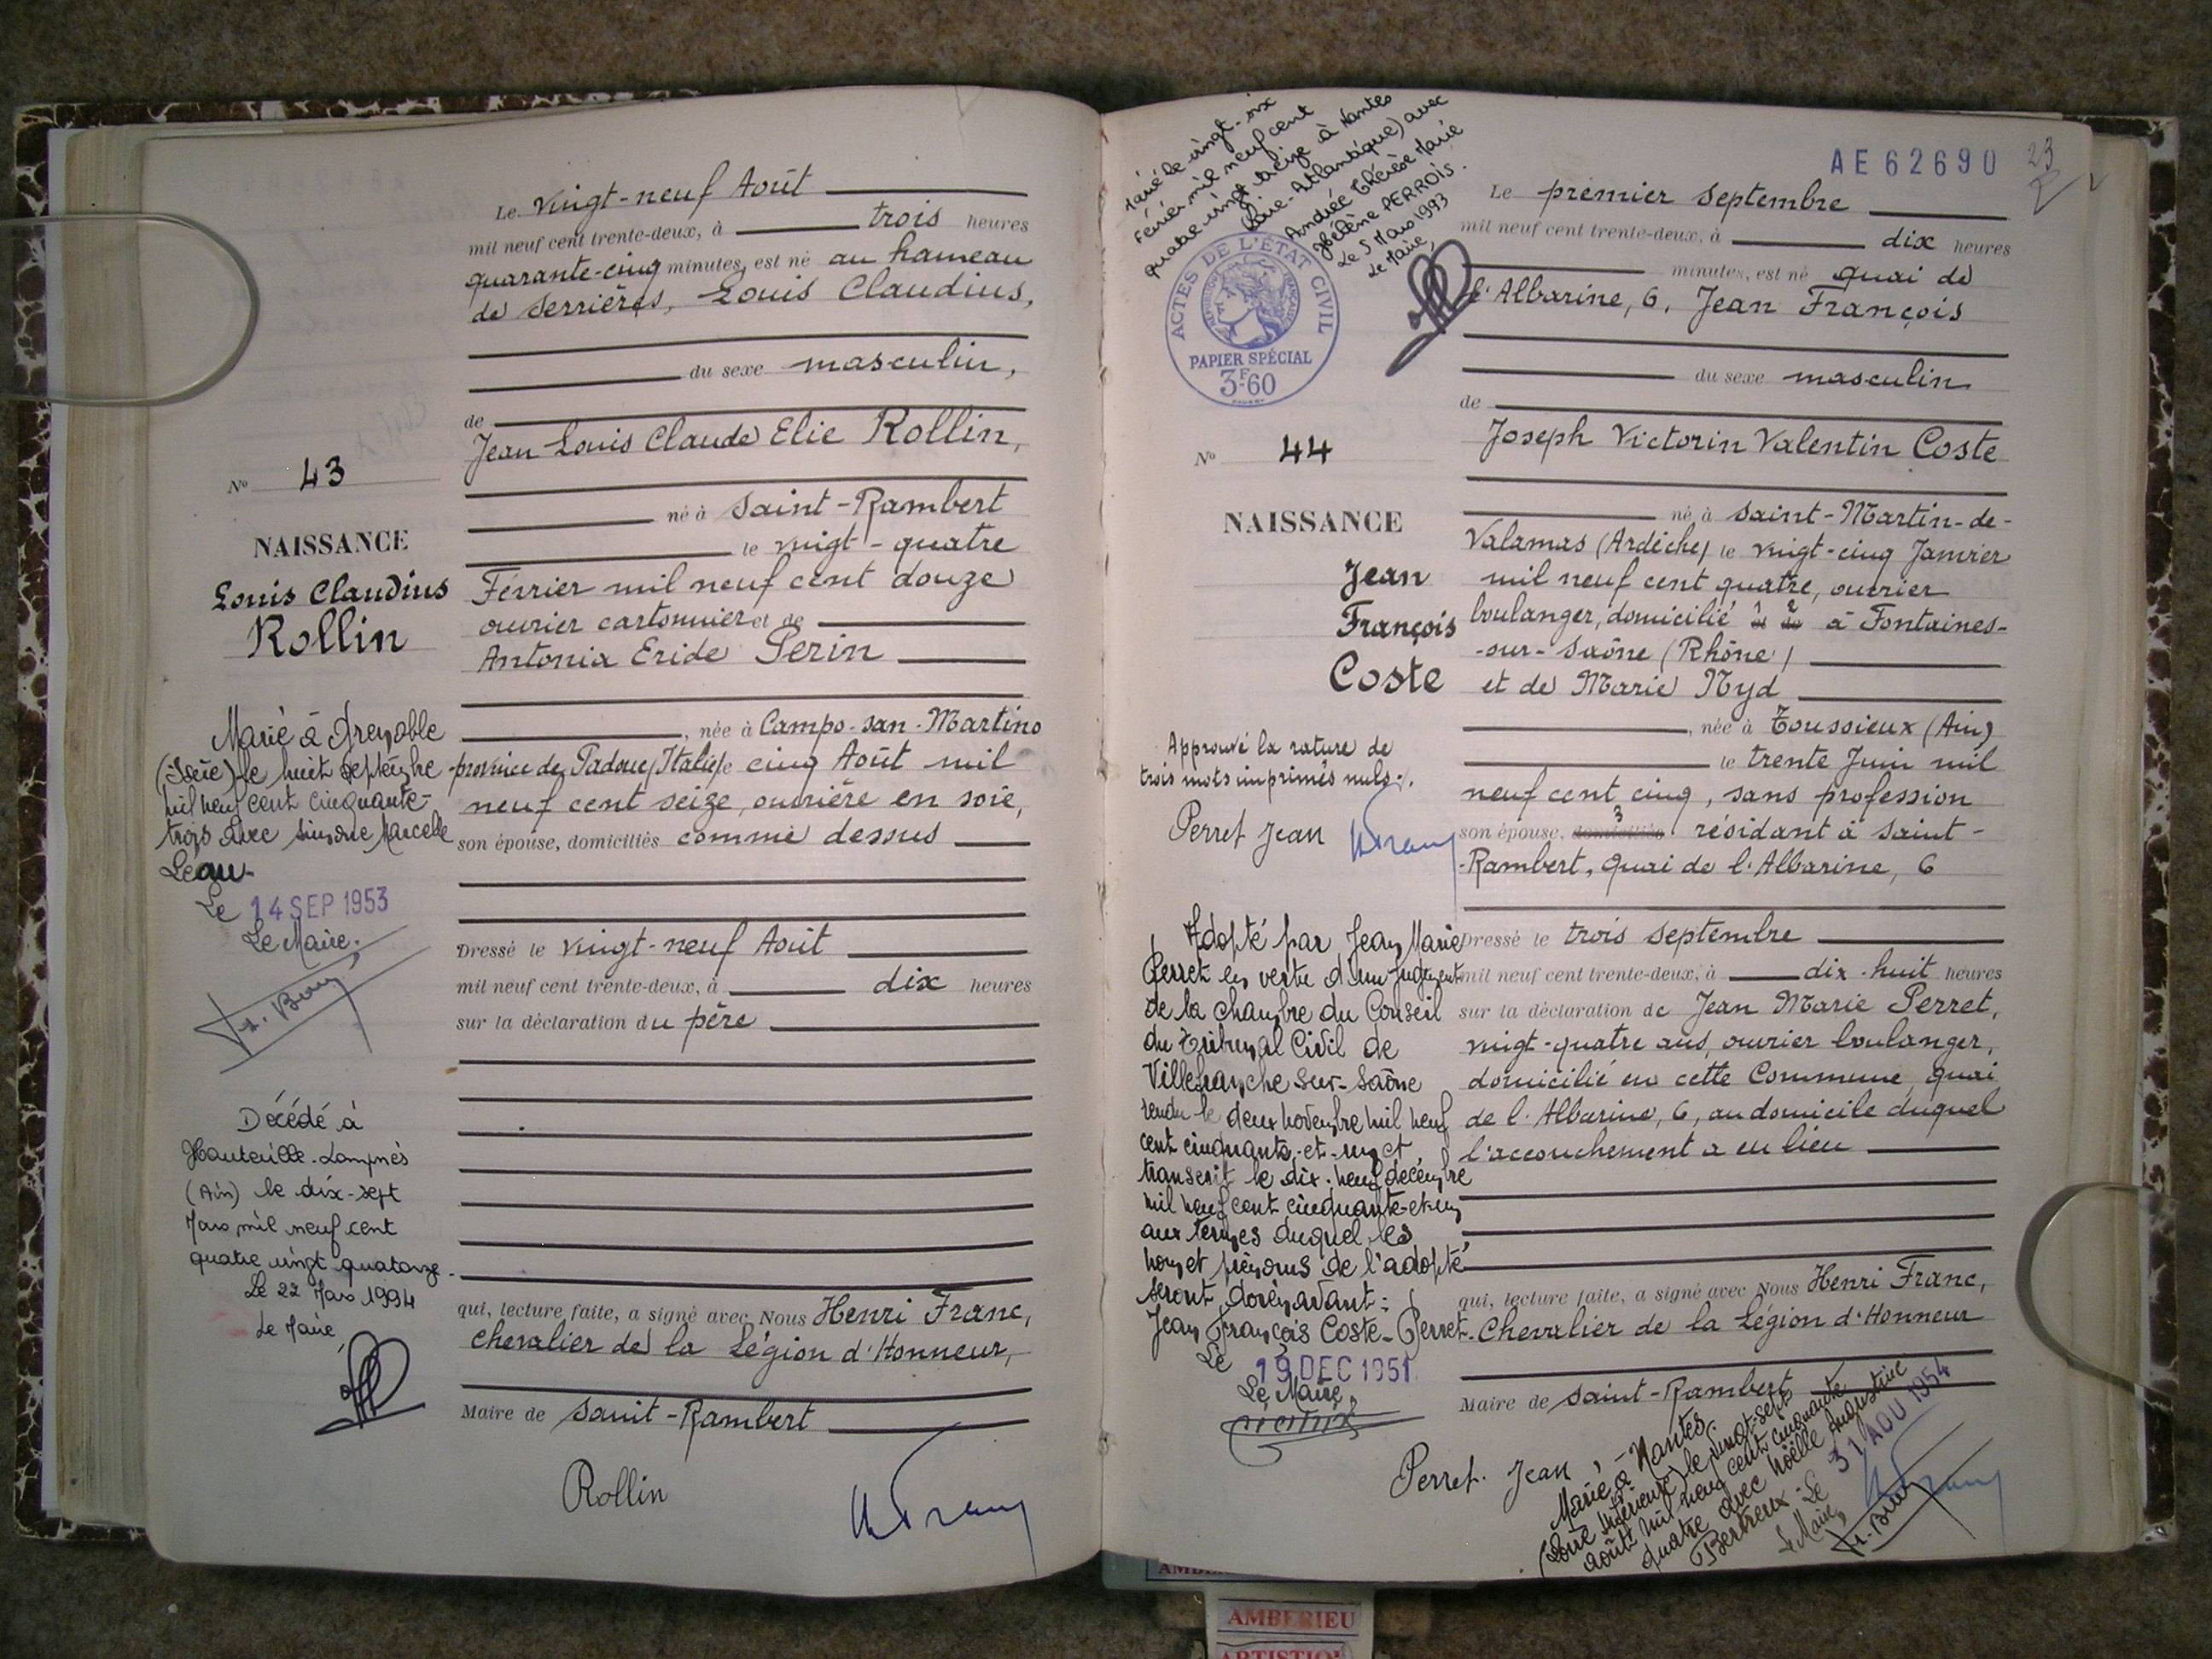 Le vingt-neuf Août
mil neuf cent trente-deux, à trois heures
quarante-cinq minutes, est né au hameau
de Serrières, Louis Claudius,
du sexe masculin,
de
Jean Louis Claude Elie Rollin,
né à Saint-Rambert
le vingt-quatre
Février mil neuf cent douze
ouvrier cartonnier et de
Antonia Eride Perin
, née à Campo-san-Martino
province de Padoue (Italie) le cinq Août mil
neuf cent seize, ouvrière en soie,
son épouse, domiciliés comme dessus
Dressé le vingt-neuf Août
mil neuf cent trente-deux, à dix heures
sur la déclaration du père
qui, lecture faite, a signé avec Nous Henri Franc,
Chevalier de la Légion d'Honneur,
Maire de Saint-Rambert
Rollin
N° 43
NAISSANCE
Louis Claudius
Rollin
Marié à Grenoble
(Isère) le huit septembre
mil neuf cent cinquante-
trois avec Simone Marcelle
Léau-
Le 14 SEP 1953
Le Maire.
Décédé à
Hauteville-Lompnès
(Ain) le dix-sept
Mars mil neuf cent
quatre vingt quatorze.
Le 22 Mars 1994
Le Maire,
AE 62690
23
Marié le vingt-six
Février mil neuf cent
quatre vingt treize à Nantes
(Loire-Atlantique) avec
Andrée Thérèse Marie
Hélène PERROIS.
Le 5 Mars 1993
Le Maire,
ACTES DE L'ÉTAT CIVIL
RÉPUBLIQUE FRANÇAISE
PAPIER SPÉCIAL
3F60
N° 44
NAISSANCE
Jean
François
Coste
Approuvé la rature de
trois mots imprimés nuls.
Perret Jean
Adopté par Jean Marie
Perret en vertu d'un jugement
de la chambre du Conseil
du Tribunal Civil de
Villefranche-sur-Saône
rendu le deux novembre mil neuf
cent cinquante-et-un et
transcrit le dix-neuf décembre
mil neuf cent cinquante-et-un
aux termes duquel les
nom et prénoms de l'adopté
seront dorénavant:
Jean François Coste-Perret.
Le 19 DEC 1951
Le Maire,
Le premier Septembre
mil neuf cent trente-deux, à dix heures
minutes, est né quai de
l'Albarine, 6, Jean François
du sexe masculin
de
Joseph Victorin Valentin Coste
né à Saint-Martin-de-
Valamas (Ardèche) le vingt-cinq Janvier
mil neuf cent quatre, ouvrier
boulanger, domicilié à Fontaines-
-sur-Saône (Rhône)
et de Marie Nyd
, née à Toussieux (Ain)
le trente Juin mil
neuf cent cinq, sans profession
son épouse, domiciliés 3 résidant à Saint-
-Rambert, Quai de l'Albarine, 6
Dressé le trois Septembre
mil neuf cent trente-deux, à dix-huit heures
sur la déclaration de Jean Marie Perret,
vingt-quatre ans, ouvrier boulanger,
domicilié en cette Commune, quai
de l'Albarine, 6, au domicile duquel
l'accouchement a eu lieu
qui, lecture faite, a signé avec Nous Henri Franc,
Chevalier de la Légion d'Honneur
Maire de Saint-Rambert
Perret Jean
Marié à Nantes
(Loire Inférieure) le vingt-sept
août mil neuf cent cinquante
quatre avec Noëlle Augustine
Bertreux - Le 31 AOU 1954
Le Maire,
AMBERIEU